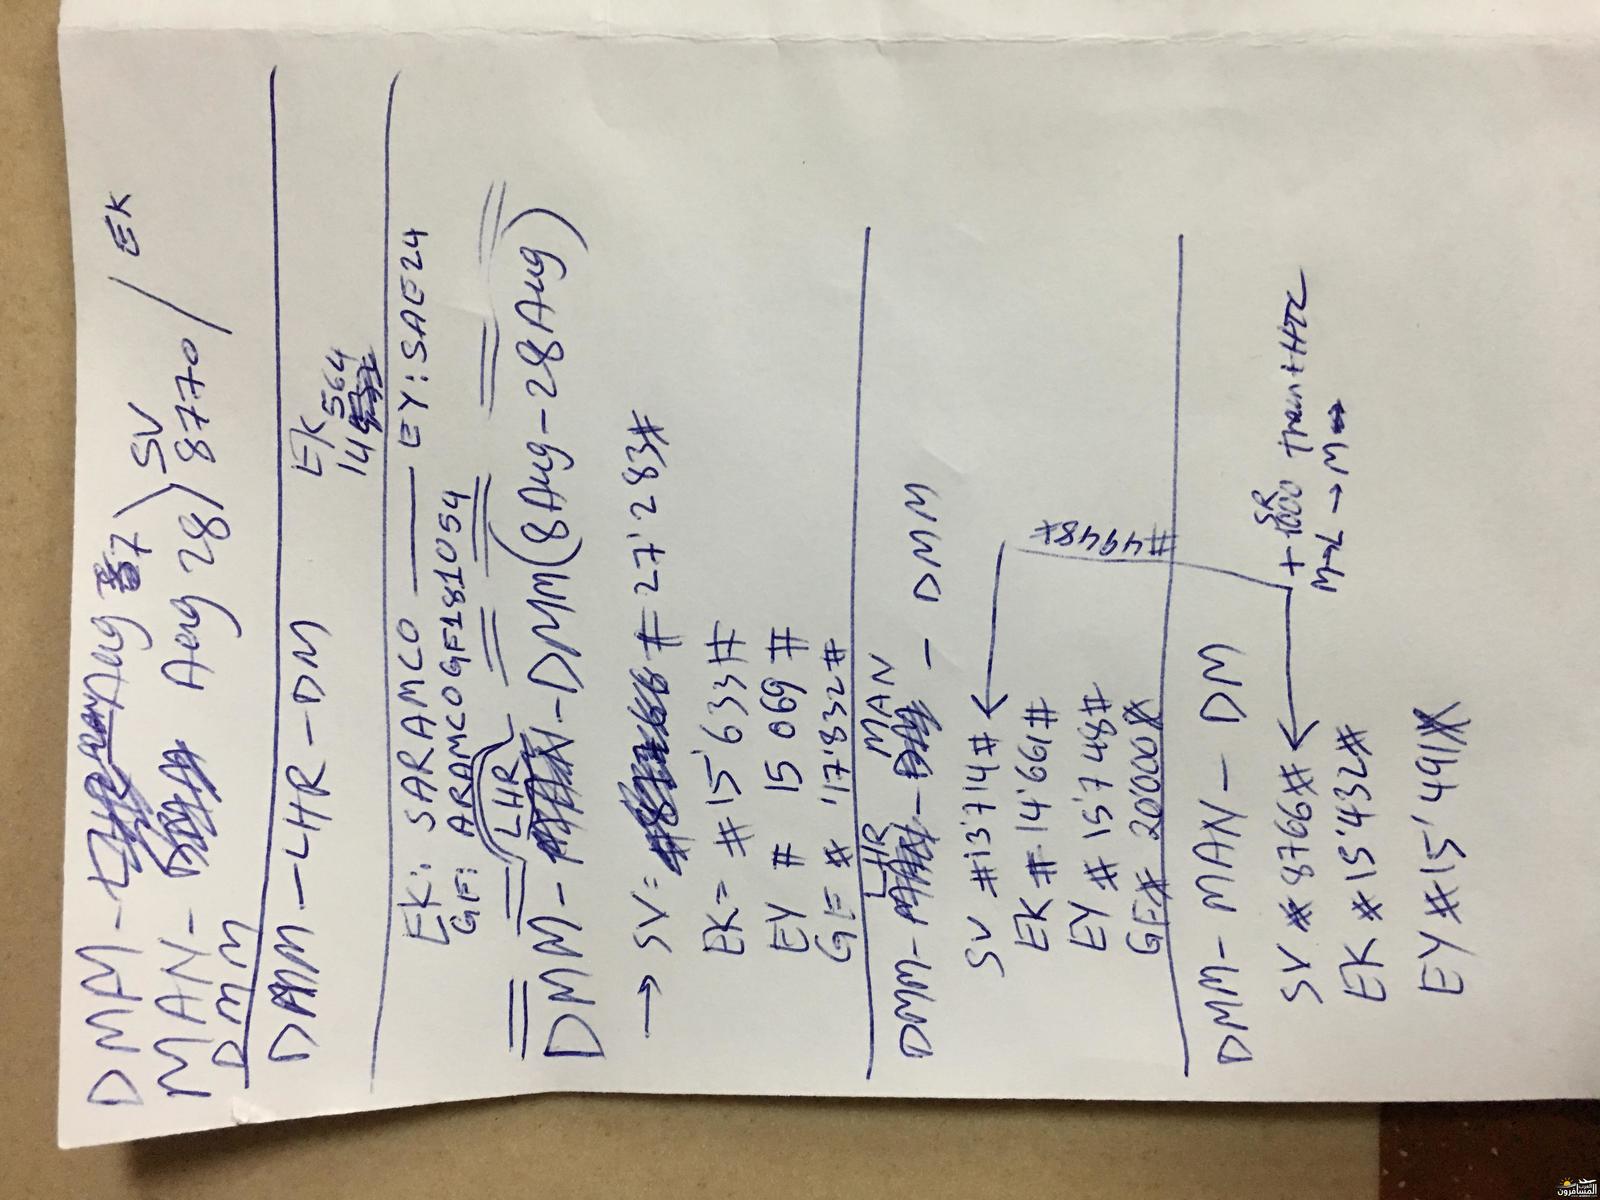 DMM - Aug 7 SV
MAN - Aug 28 8770 / EK
DMM
DMM - LHR - DM EK
14 564
EK: SARAMCO —— EY: SAE24
GF: ARAMCOGF181054
LHR
DMM - - DMM (8Aug - 28Aug)
→ SV = # 27'283#
EK = # 15'633#
EY # 15 069 #
GF # 17'832#
LHR MAN
DMM - - - DMM
SV #13'714#
EK # 14'661#
EY # 15'748#
GF# 20'000#
#4948#
DMM - MAN - DM
SR
+ 1000 train + HTC
M → L → M
SV # 8766 #
EK # 15'432#
EY # 15'491#
العرب
المسافرون